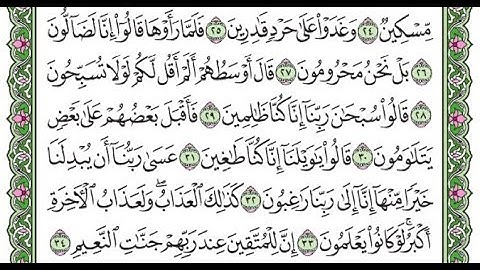 مِّسْكِينٌ ٢٤ وَغَدَوْا۟ عَلَىٰ حَرْدٍ قَٰدِرِينَ ٢٥ فَلَمَّا رَأَوْهَا قَالُوٓا۟ إِنَّا لَضَآلُّونَ
٢٦ بَلْ نَحْنُ مَحْرُومُونَ ٢٧ قَالَ أَوْسَطُهُمْ أَلَمْ أَقُل لَّكُمْ لَوْلَا تُسَبِّحُونَ
٢٨ قَالُوا۟ سُبْحَٰنَ رَبِّنَآ إِنَّا كُنَّا ظَٰلِمِينَ ٢٩ فَأَقْبَلَ بَعْضُهُمْ عَلَىٰ بَعْضٍ
يَتَلَٰوَمُونَ ٣٠ قَالُوا۟ يَٰوَيْلَنَآ إِنَّا كُنَّا طَٰغِينَ ٣١ عَسَىٰ رَبُّنَآ أَن يُبْدِلَنَا
خَيْرًا مِّنْهَآ إِنَّآ إِلَىٰ رَبِّنَا رَٰغِبُونَ ٣٢ كَذَٰلِكَ ٱلْعَذَابُ ۖ وَلَعَذَابُ ٱلْءَاخِرَةِ
أَكْبَرُ ۚ لَوْ كَانُوا۟ يَعْلَمُونَ ٣٣ إِنَّ لِلْمُتَّقِينَ عِندَ رَبِّهِمْ جَنَّٰتِ ٱلنَّعِيمِ ٣٤